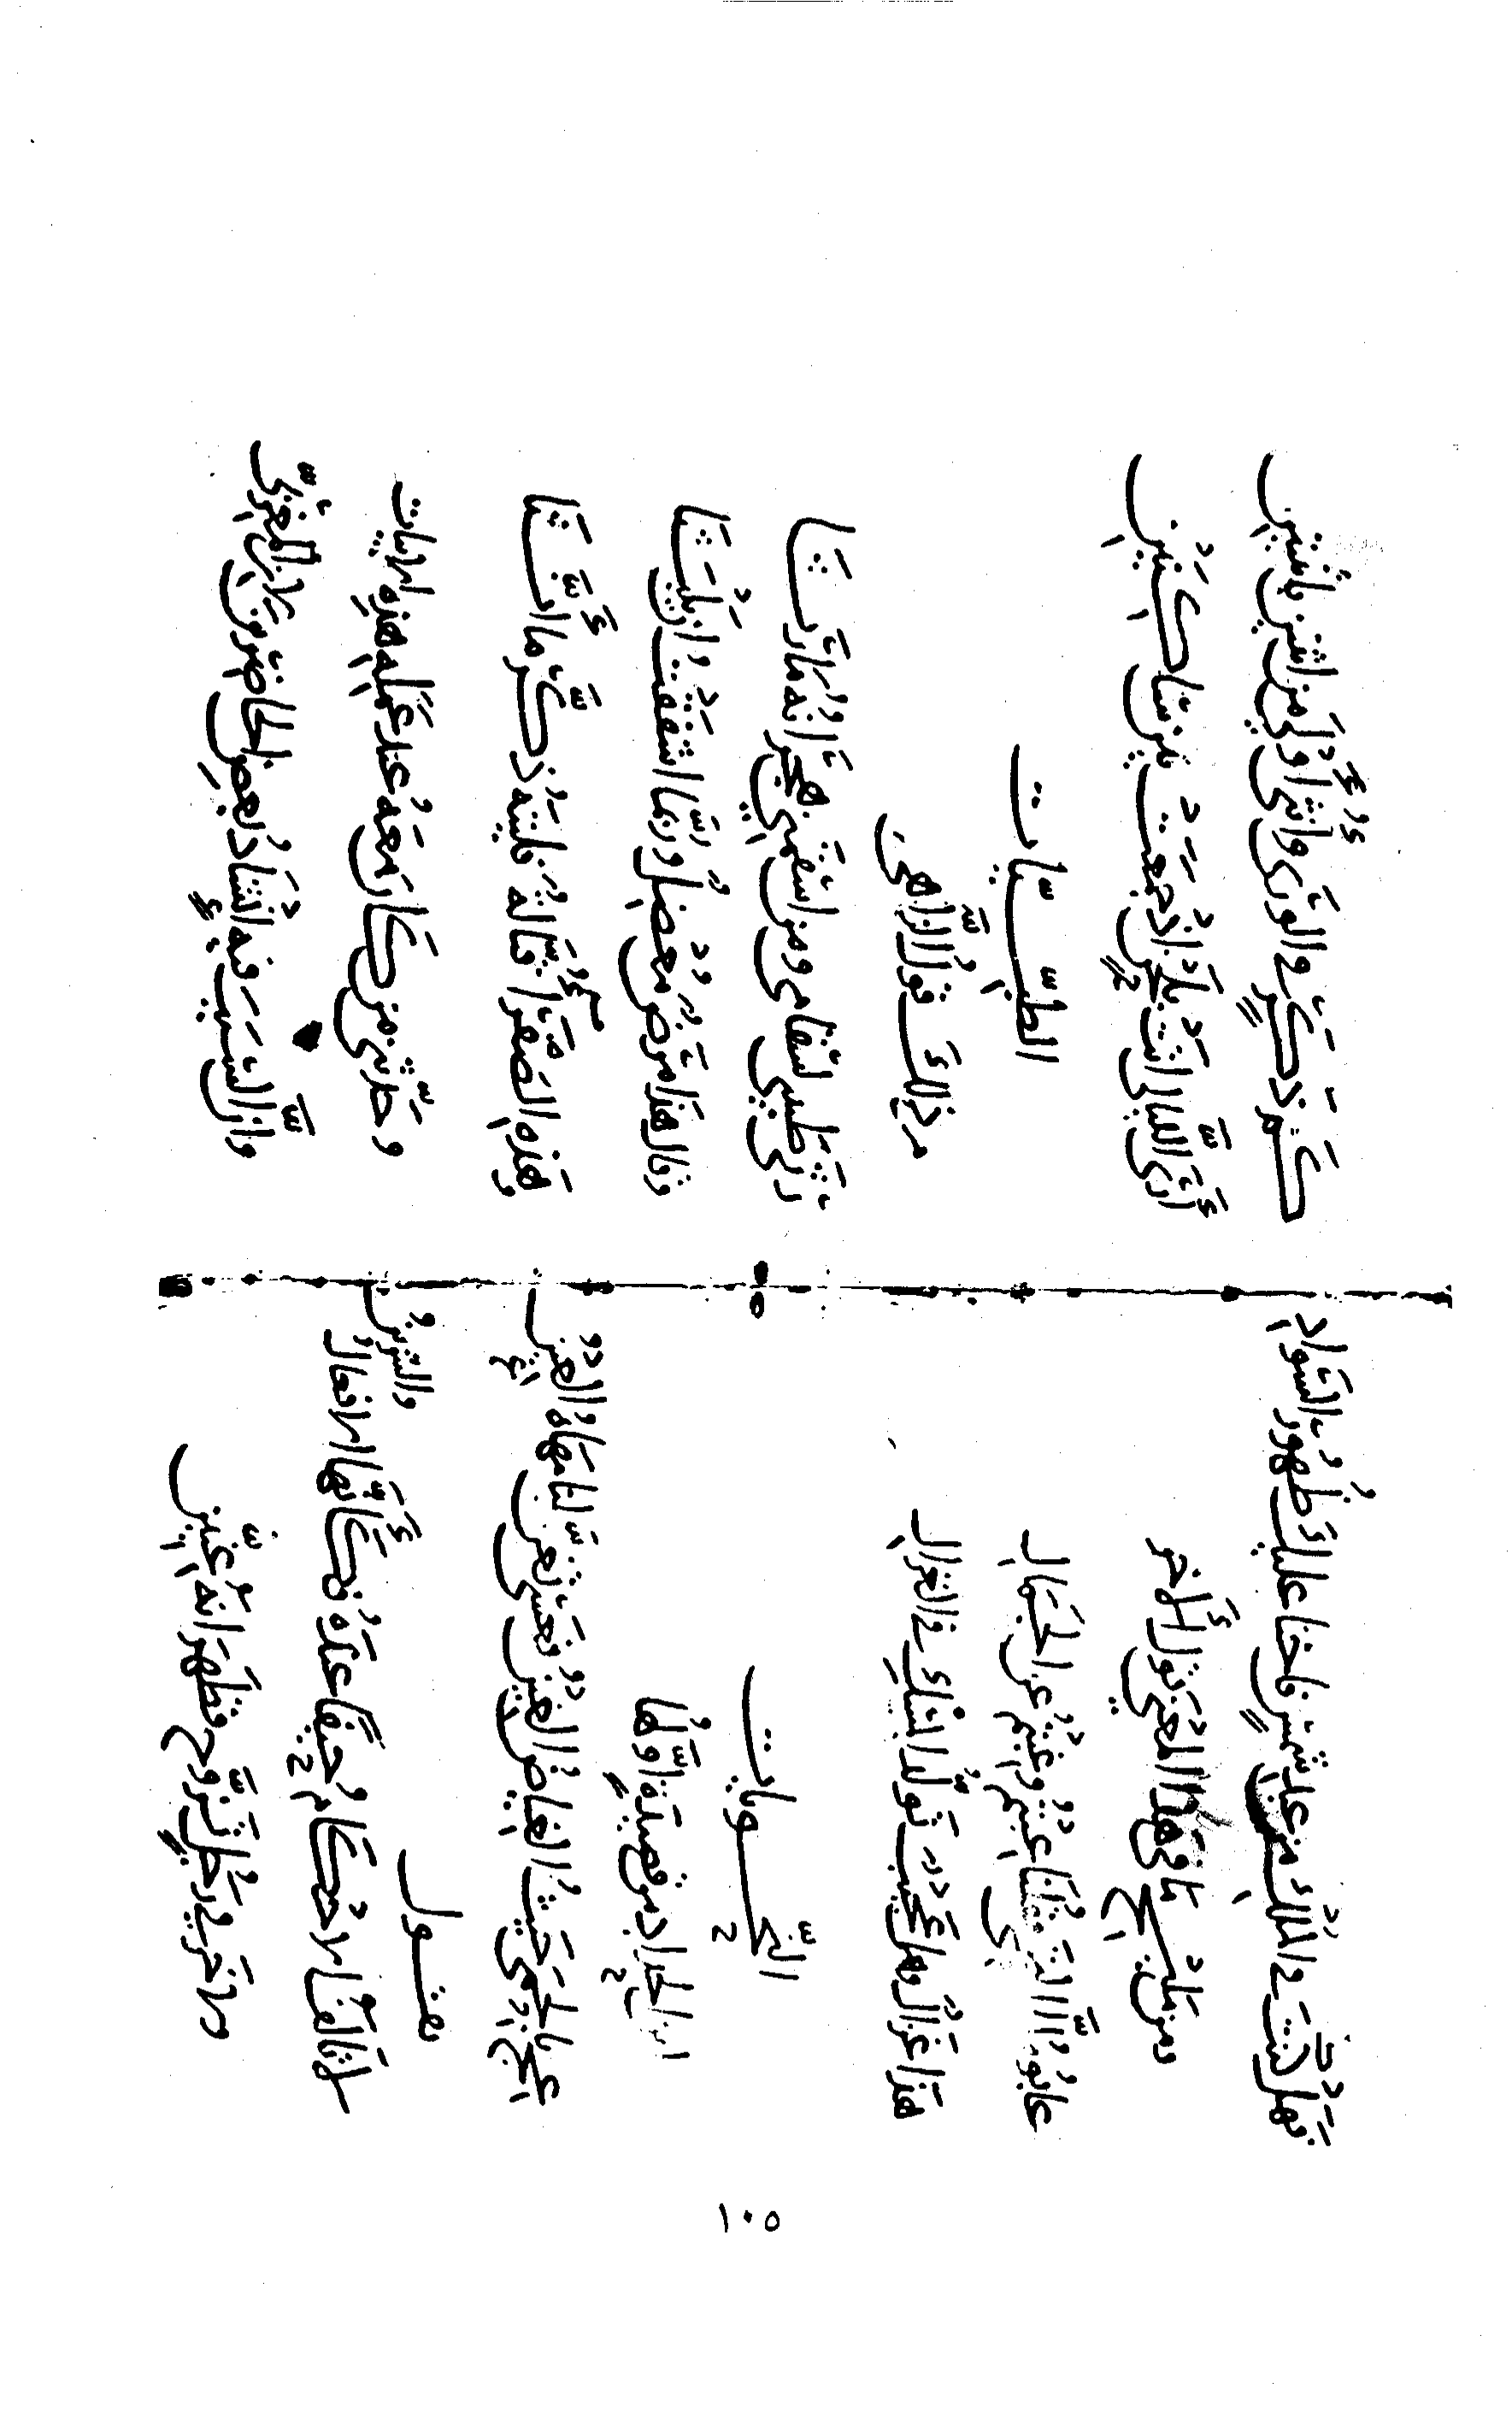 فهل كنت في الملك من عبد شمس فاخنى عليك ظهور السواد
ومن مليح ما في هذا المعنى قول الآخر
عابوه لما التحى فقلنا عبتم وغبتم عن الجمال
هذا غزال وهل عجيب تولد المسك في الغزال
النحويات
ابن الحداد من قصيدة اولها
عج بالحمى حيث الغياض الغين فعسى تعن لنا مهاه العين
يقول
لا تالف الاحكام حيفا عنده فكأنها الافعال والتنوين
ولآخر تزوج فظهر انه عنين
كم ذكر في الورى وانثى اولى من اثنين باثنتين
أرى الليالي اتت بلحن اذ جمعت بين ساكنين
الطبيات
من ذلك قول الزاهي
رثى طبيبي لسقامي ومن اسقمني يهجر انه ما رثى
وقال هذا مرض معضل وربما اشفقت ان يلبثا
وهذه الصفراء قتالة فليته ذكر ما انثا
وحدثني من كان معه عند عمله هذه الابيات
وان السبب فيه انشاد بعض الحاضرين
١٠٥